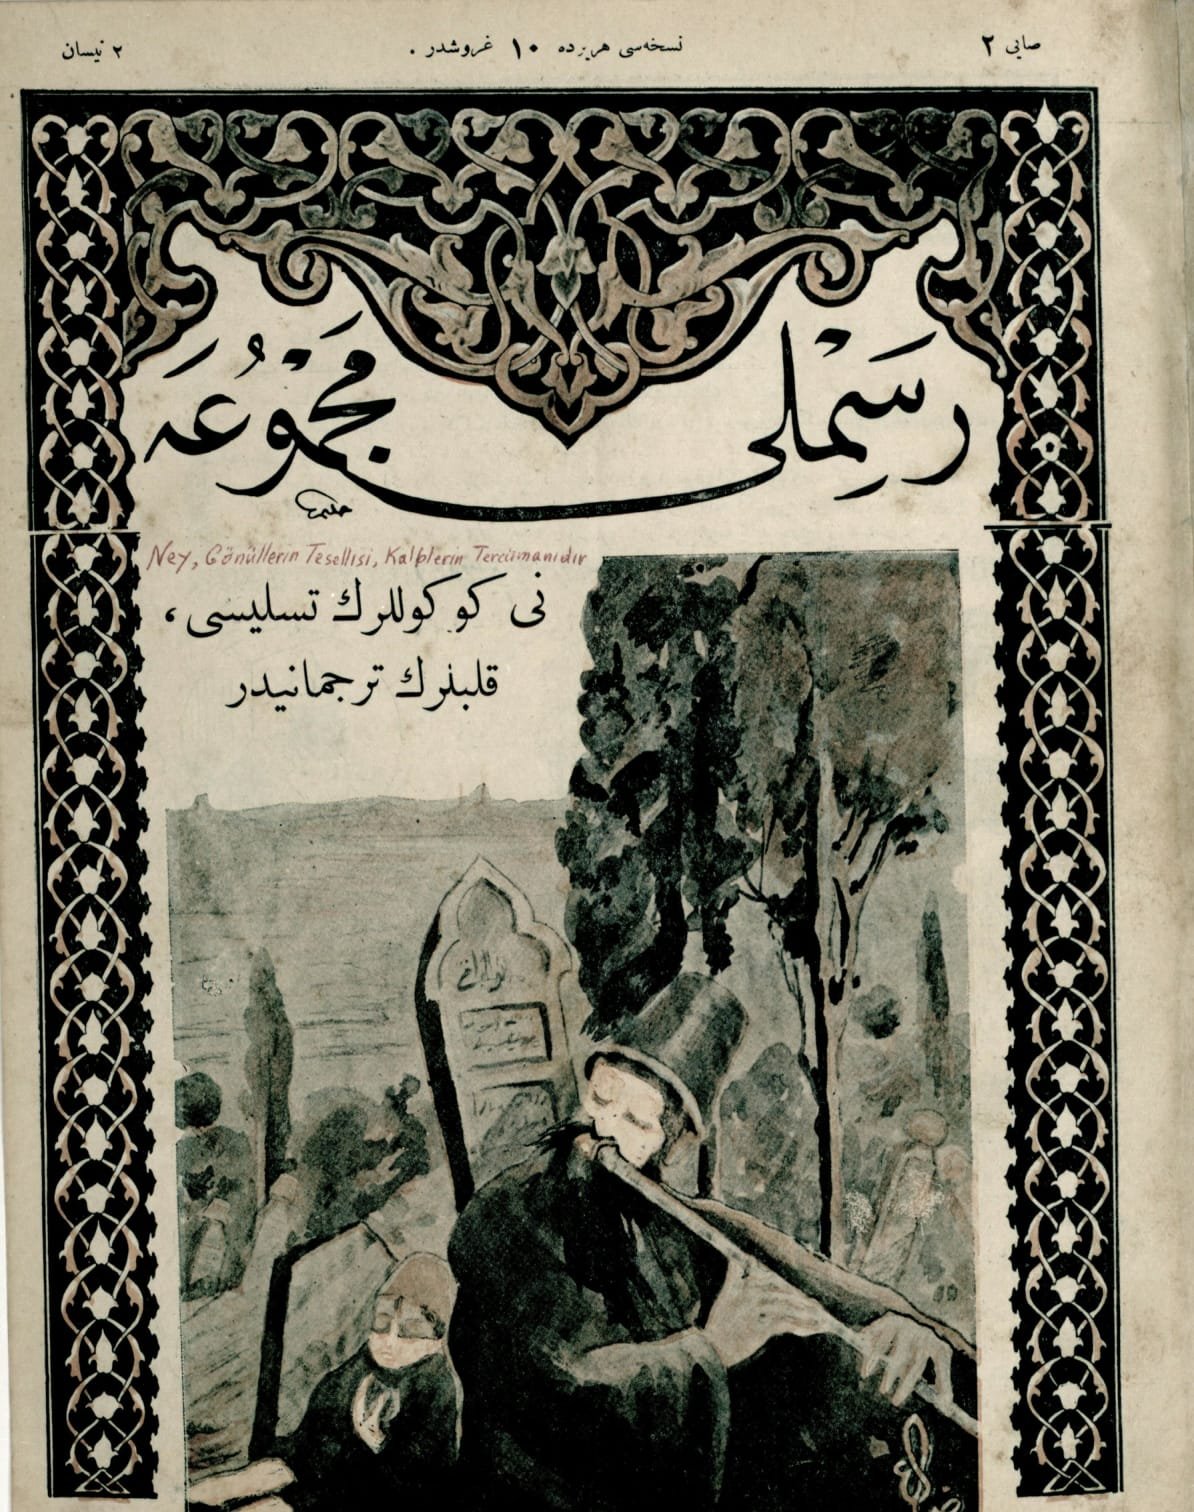 صایی ٢
نسخه‌سی هر یرده ١٠ غروشدر .
٢ نیسان
رَسِمْلی مَجْمُوعَه
Ney, Gönüllerin Tesellisi, Kalplerin Tercümanıdır
نی کوکوللرك تسلیسی،
قلبلرك ترجمانیدر